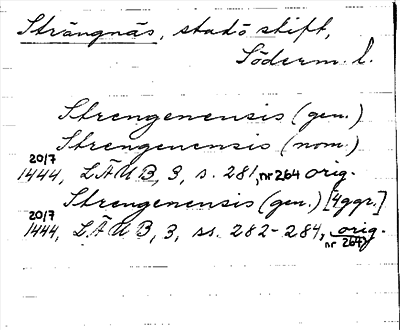 Strängnäs, stads skift,
Söderm. l.
Strengenensis (gen.)
Strengenensis (nom.)
20/7 1444, LÄUB, 3, s. 281, nr 264 orig.
Strengenensis (gen.) [4 ggr.]
20/7 1444, LÄUB, 3, ss. 282-284, orig.
nr 264